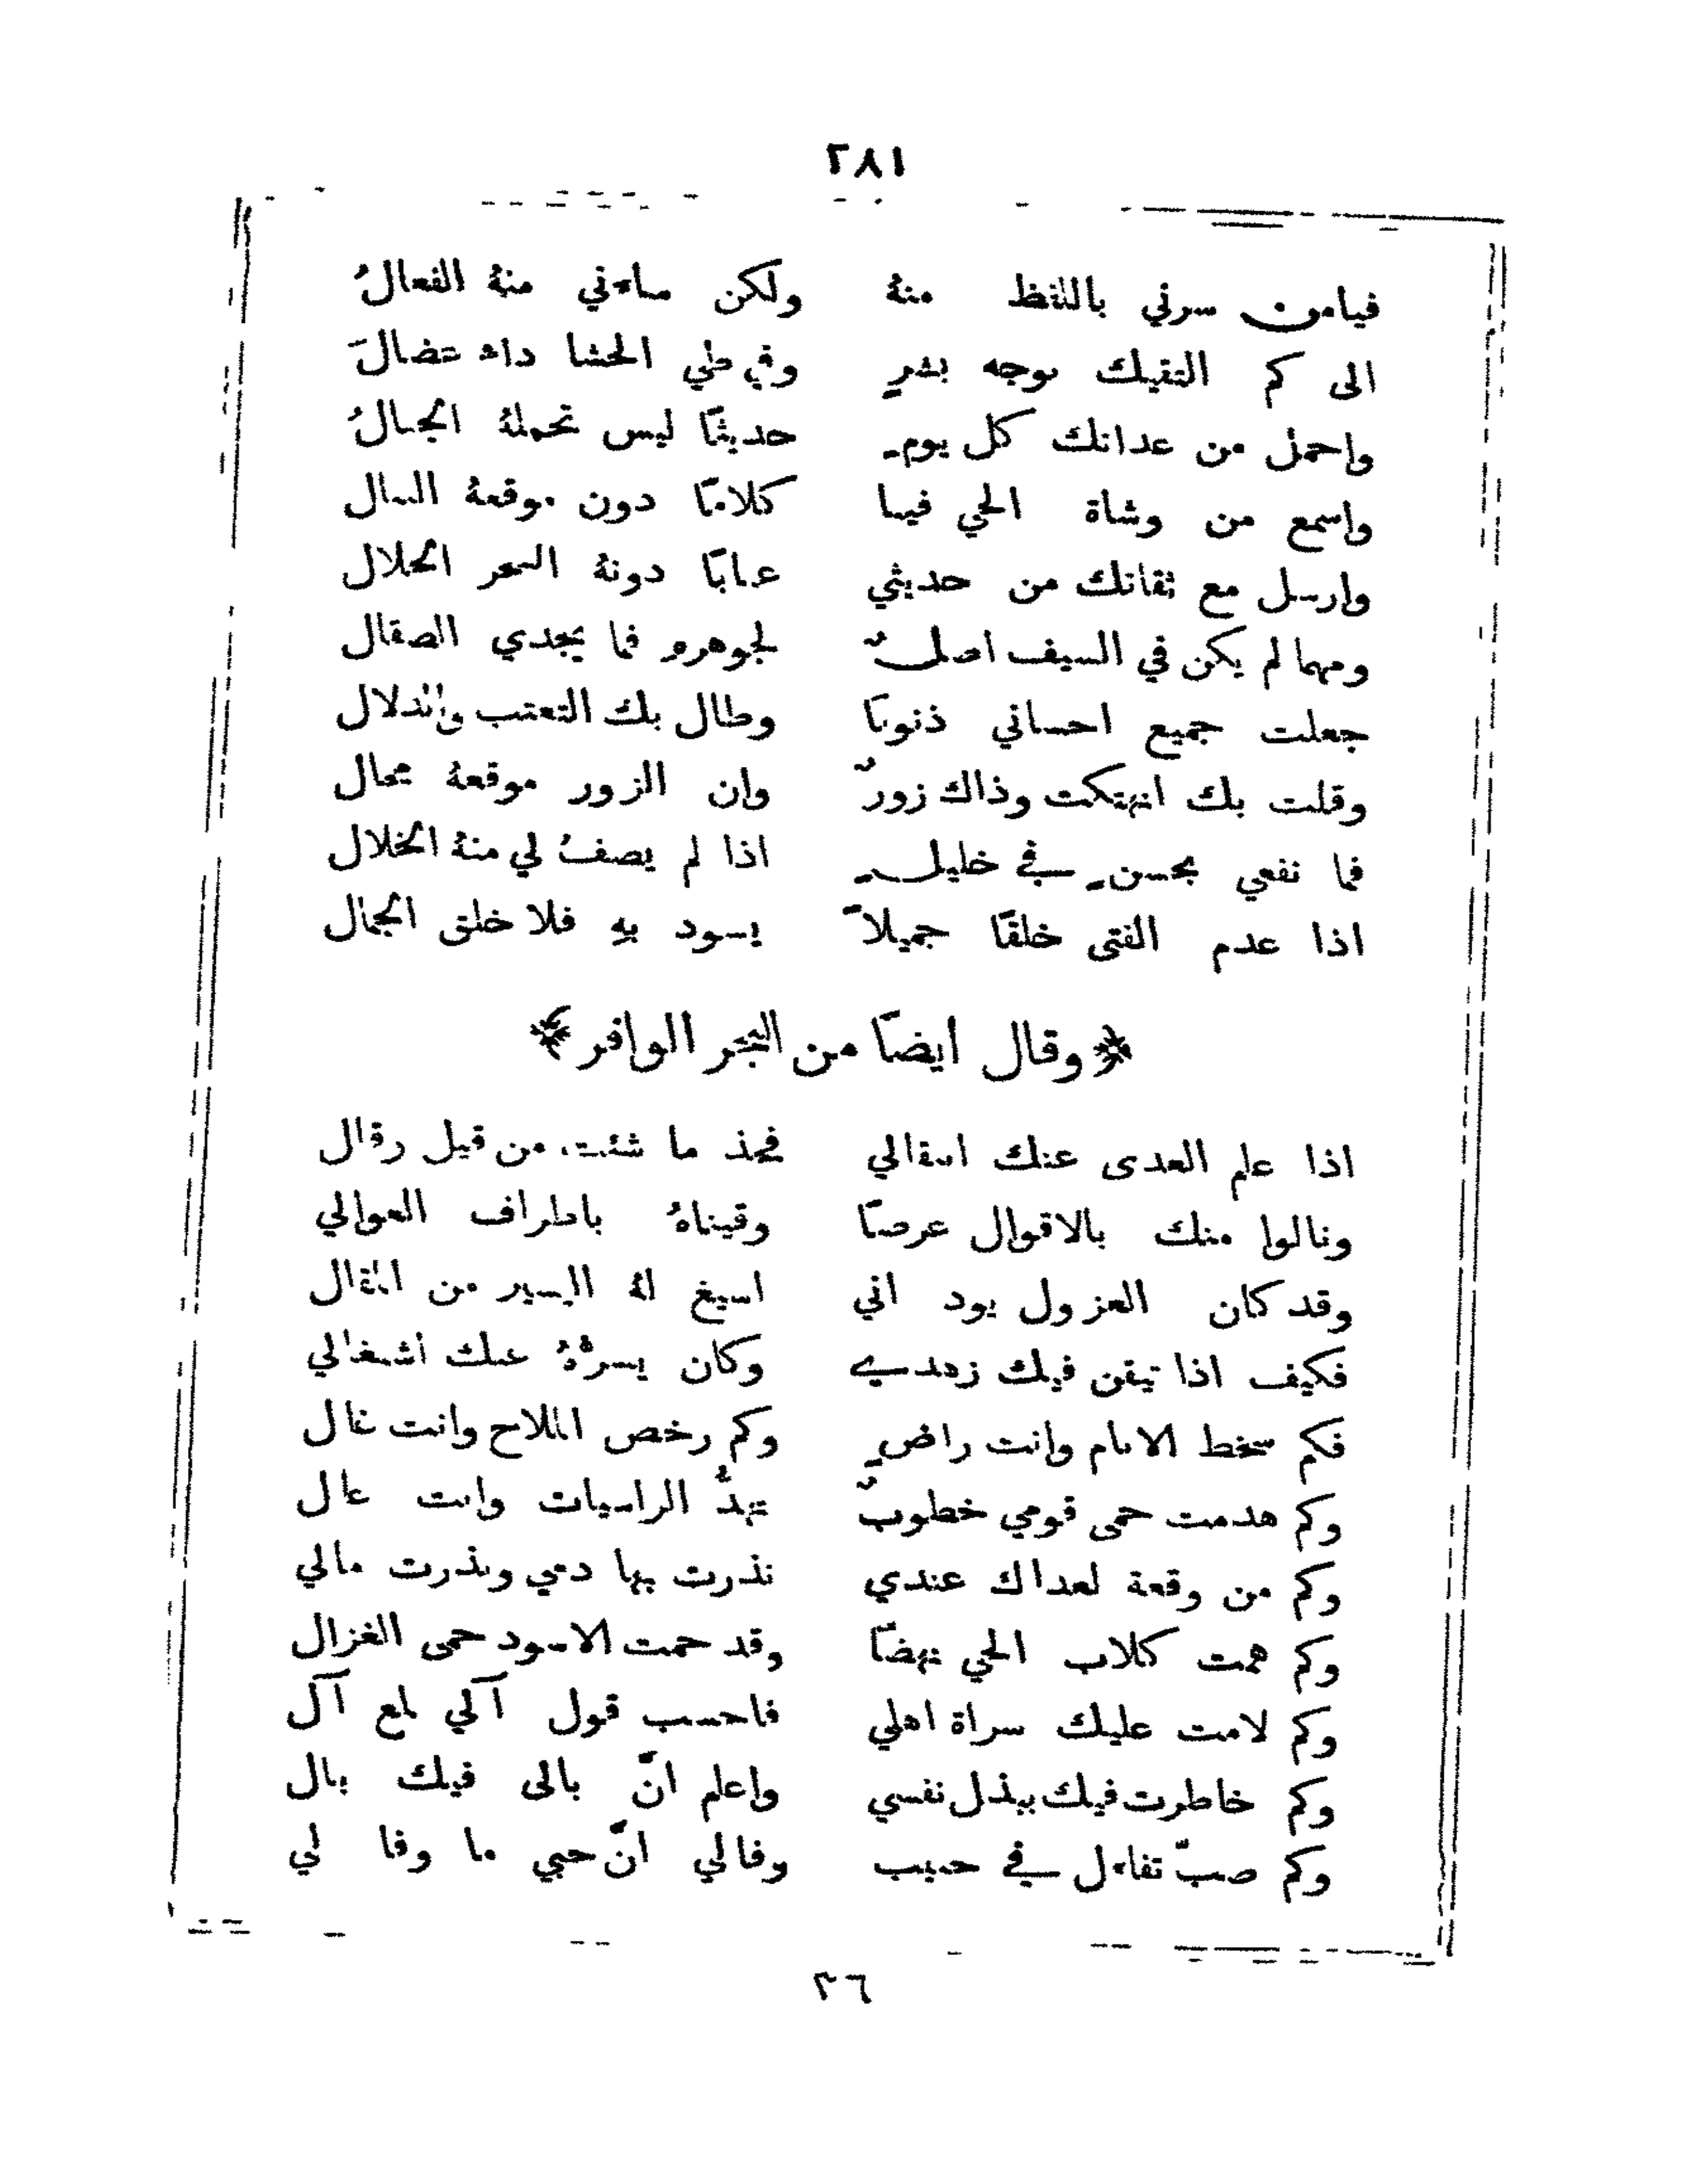 ٢٨١
فيامن سرني باللفظ منهُ ولكن ساءني منهُ الفعالُ
الى كم التقيك بوجه بشرٍ وفي طي الحشا داء عضالَ
واحمل من عداتك كل يومٍ حديثًا ليس تحملهُ الجبالُ
واسمع من وشاة الحي فينا كلامًا دون موقعهُ النبال
وارسل مع ثقاتك من حديثي عتابًا دونهُ السحر الحلال
ومهما لم يكن في السيف اصلٌ لجوهرهِ فما يجدي الصقال
جعلت جميع احساني ذنوبًا وطال بك التعتب والدلال
وقلت بك انهتكت وذاك زورٌ وان الزور موقعهُ محال
فما نفعي بحسنٍ في خليلٍ اذا لم يصفُ لي منهُ الخلال
اذا عدم الفتى خلقًا جميلاً يسود بهِ فلا خلق الجمال
﴿ وقال ايضًا من البحر الوافر ﴾
اذا علم العدى عنك انتقالي فخذ ما شئت من قيل وقال
ونالوا منك بالاقوال عرضًا وقيناهُ باطراف العوالي
وقد كان العزول يود اني اسيغ لهُ اليسير من المقال
فكيف اذا تيقن فيك زهدي وكان يسرّهُ عنك اشتغالي
فكم سخط الانام وانت راضٍ وكم رخص الملاح وانت غال
وكم هدمت حمى قومي خطوبٌ تهدُّ الراسيات وانت عال
وكم من وقعة لعداك عندي نذرت بها دمي ونذرت مالي
وكم همت كلاب الحي نهضًا وقد حمت الاسود حمى الغزال
وكم لامت عليك سراة اهلي فاحسب قول آلي لمع آل
وكم خاطرت فيك ببذل نفسي واعلم انّ بالى فيك بال
وكم صبّ تفاءل في حبيب وفالي انّ حبي ما وفا لي
٣٦